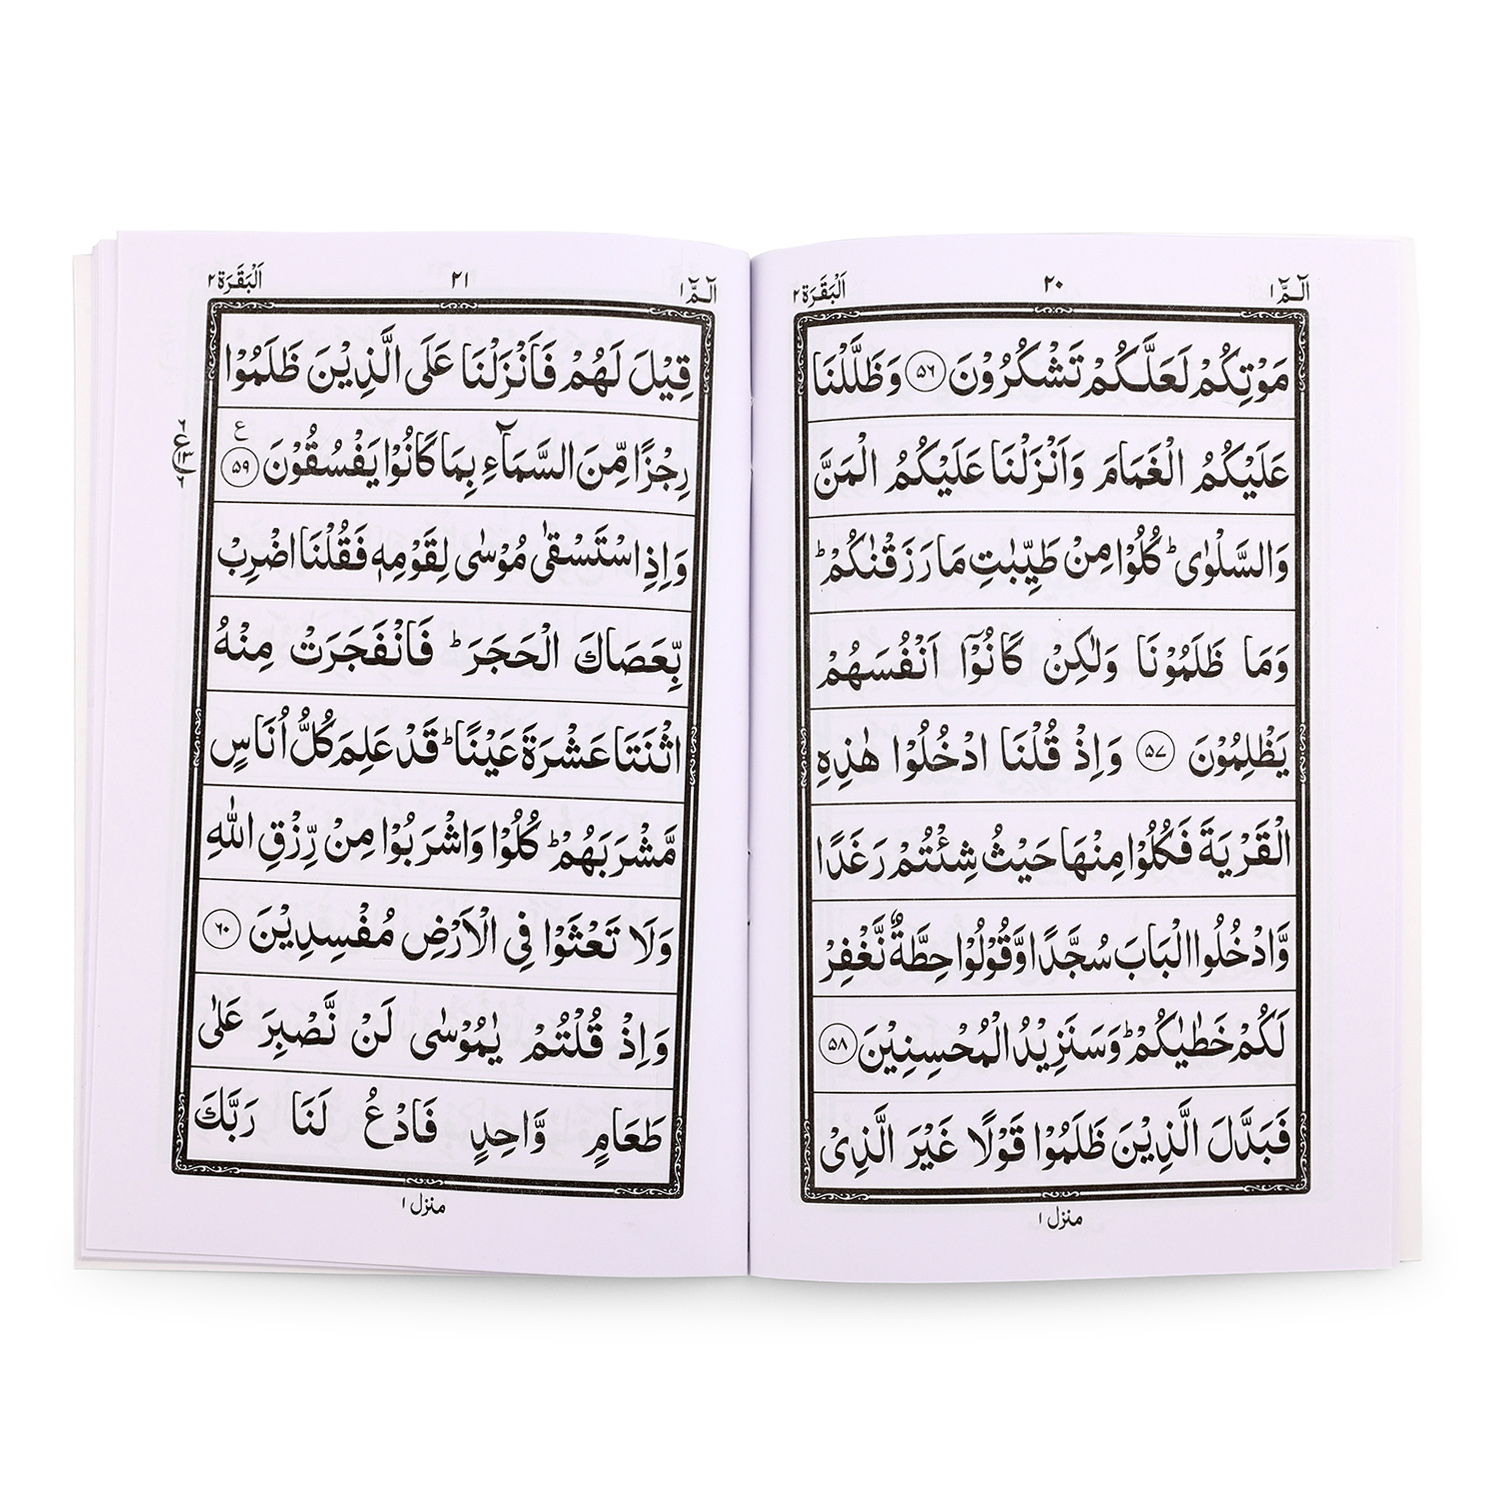 الٓمّٓ ۱
۲۰
اَلْبَقَرَة ۲
مَوْتِكُمْ لَعَلَّكُمْ تَشْكُرُوْنَ ﴿۵۶﴾ وَظَلَّلْنَا
عَلَيْكُمُ الْغَمَامَ وَاَنْزَلْنَا عَلَيْكُمُ الْمَنَّ
وَالسَّلْوٰى ؕ كُلُوْا مِنْ طَيِّبٰتِ مَا رَزَقْنٰكُمْ ؕ
وَمَا ظَلَمُوْنَا وَلٰكِنْ كَانُوْۤا اَنْفُسَهُمْ
يَظْلِمُوْنَ ﴿۵۷﴾ وَاِذْ قُلْنَا ادْخُلُوْا هٰذِهِ
الْقَرْيَةَ فَكُلُوْا مِنْهَا حَيْثُ شِئْتُمْ رَغَدًا
وَّادْخُلُوا الْبَابَ سُجَّدًا وَّقُوْلُوْا حِطَّةٌ نَّغْفِرْ
لَكُمْ خَطٰيٰكُمْ ؕ وَسَنَزِيْدُ الْمُحْسِنِيْنَ ﴿۵۸﴾
فَبَدَّلَ الَّذِيْنَ ظَلَمُوْا قَوْلًا غَيْرَ الَّذِىْ
منزل ۱
الٓمّٓ ۱
۲۱
اَلْبَقَرَة ۲
قِيْلَ لَهُمْ فَاَنْزَلْنَا عَلَى الَّذِيْنَ ظَلَمُوْا
رِجْزًا مِّنَ السَّمَآءِ بِمَا كَانُوْا يَفْسُقُوْنَ ﴿۵۹﴾ ع
وَاِذِ اسْتَسْقٰى مُوْسٰى لِقَوْمِهٖ فَقُلْنَا اضْرِبْ
بِّعَصَاكَ الْحَجَرَ ؕ فَانْفَجَرَتْ مِنْهُ
اثْنَتَا عَشْرَةَ عَيْنًا ؕ قَدْ عَلِمَ كُلُّ اُنَاسٍ
مَّشْرَبَهُمْ ؕ كُلُوْا وَاشْرَبُوْا مِنْ رِّزْقِ اللّٰهِ
وَلَا تَعْثَوْا فِى الْاَرْضِ مُفْسِدِيْنَ ﴿۶۰﴾
وَاِذْ قُلْتُمْ يٰمُوْسٰى لَنْ نَّصْبِرَ عَلٰى
طَعَامٍ وَّاحِدٍ فَادْعُ لَنَا رَبَّكَ
منزل ۱